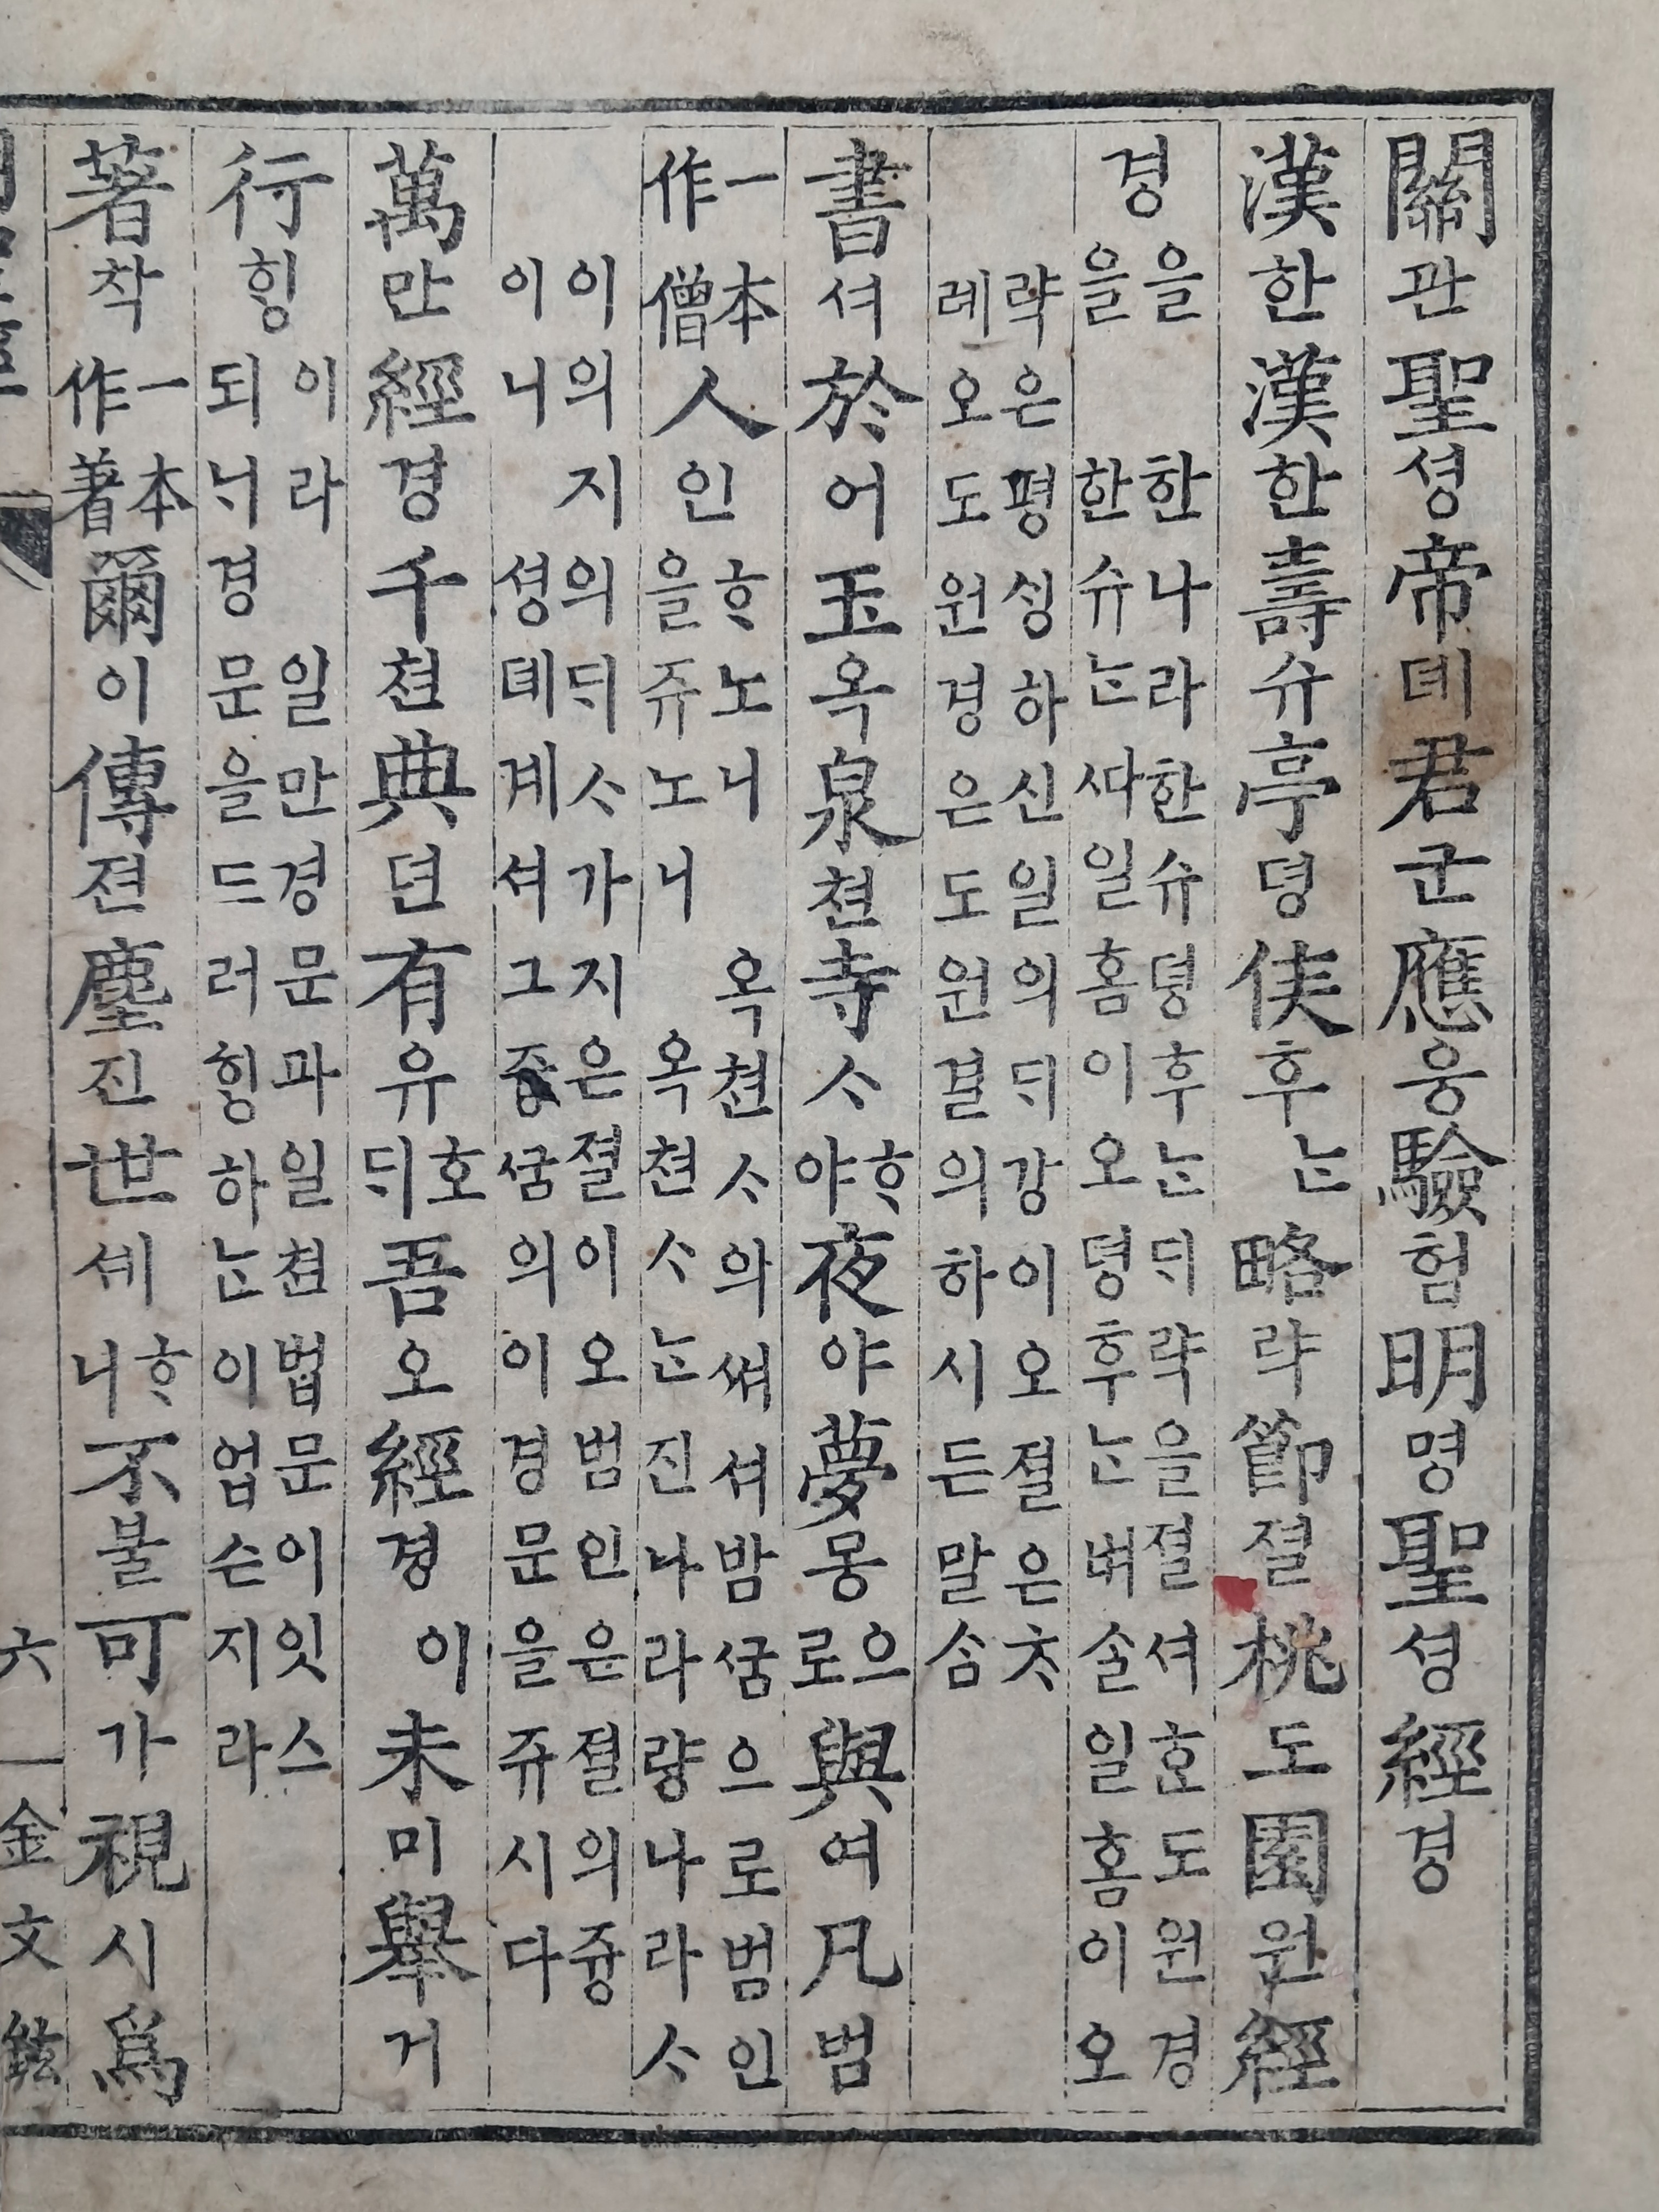 關관聖셩帝뎨君군應응驗험明명聖셩經경
漢한漢한壽슈亭뎡侯후ᄂᆞᆫ略략節졀桃도園원經
경을
을
한나라한슈뎡후ᄂᆞᆫᄃᆡ략을졀셔호도원경
한슈ᄂᆞᆫᄯᅡ일홈이오뎡후ᄂᆞᆫ벼ᄉᆞᆯ일홈이오
략은평ᄉᆡᆼ하신일의ᄃᆡ강이오졀은ᄎᆞ
례오도원경은도원결의하시든말ᄉᆞᆷ
書셔於어玉옥泉쳔寺ᄉᆞᄒᆞ야夜야夢몽으로與여凡범
一本
作僧
人인
ᄒᆞ노니
을쥬노니
옥쳔ᄉᆞ의ᄡᅧ셔밤ᄭᅮᆷ으로범인
옥쳔ᄉᆞᄂᆞᆫ진나라량나라ᄉᆞ
이의지의ᄃᆡᄉᆞ가지은졀이오범인은졀의즁
이니 셩뎨계셔그즁ᄭᅮᆷ의이경문을쥬시다
萬만經경千쳔典뎐有유호ᄃᆡ吾오經경이未미擧거
行ᄒᆡᆼ
이라
되ᄂᆡ경
일만경문과일쳔법문이잇스
문을드러ᄒᆡᆼ하ᄂᆞᆫ이업슨지라
著착
一本
作著
爾이傳젼塵진世셰ᄒᆞ니不불可가視시爲
六
金文鉉